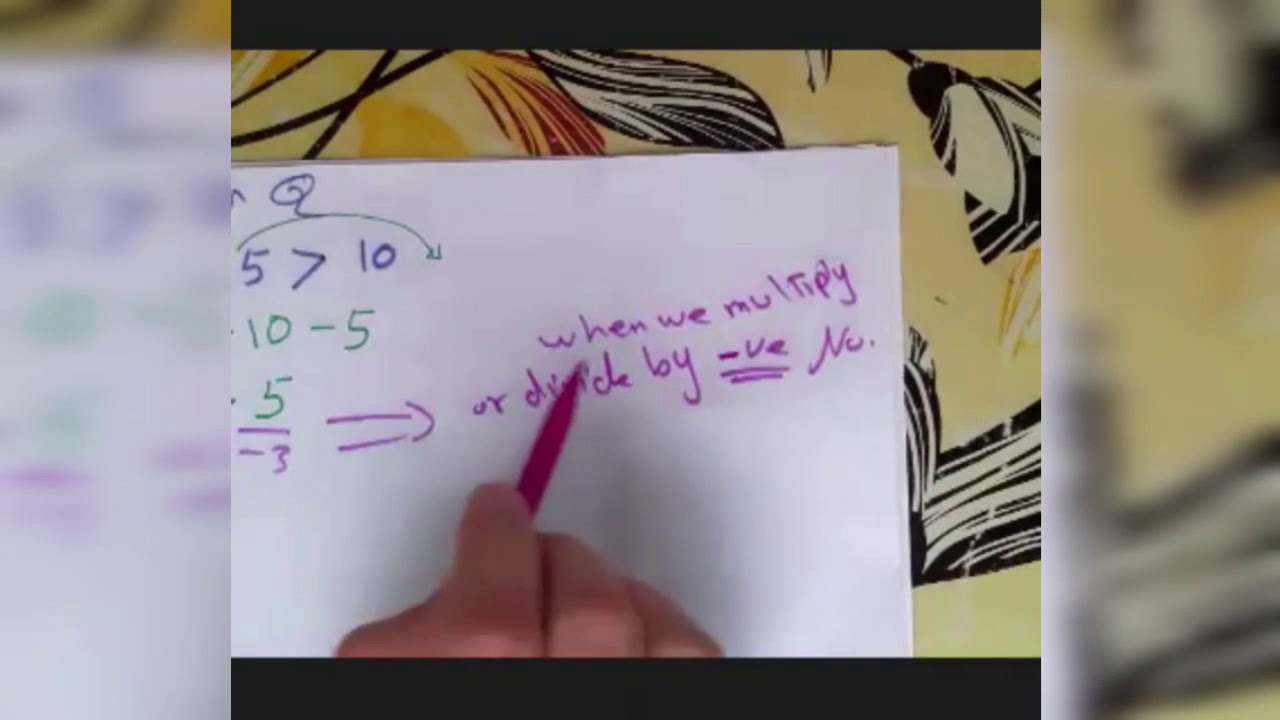 Q
5 > 10
10 - 5
5
-3
⟹
when we multiply
or divide by -ve No.